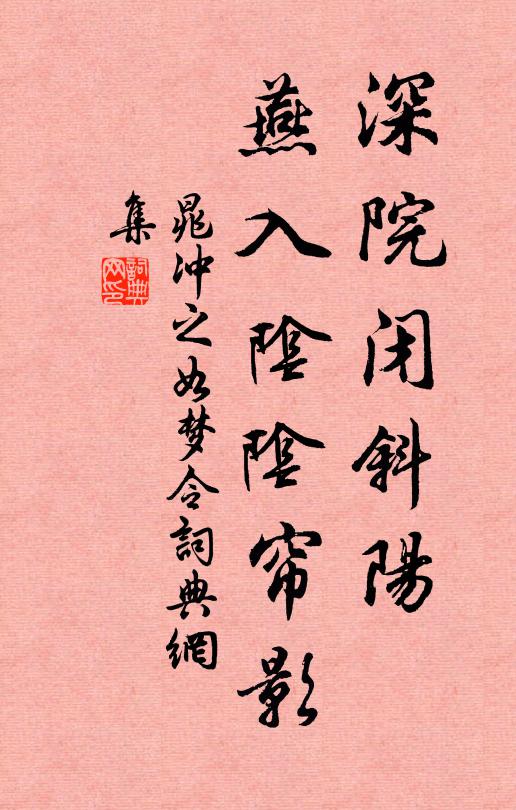 深院闭斜陽
燕入陰陰帘影
晁冲之如梦令詞典網
集
詞典
网印